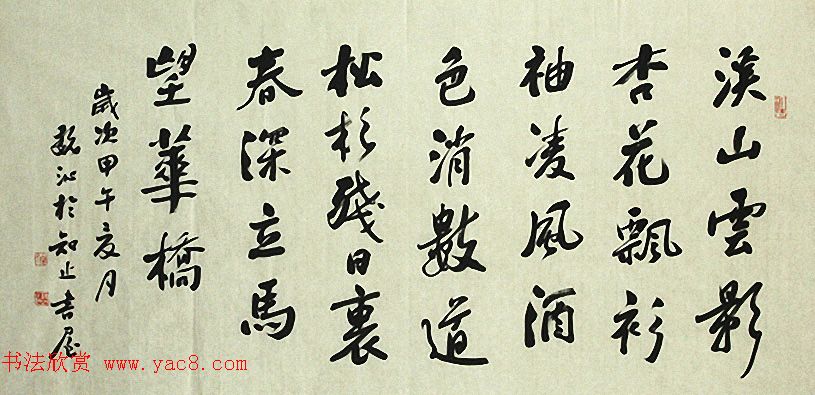 溪山雲影
杏花飄衫
袖凌風酒
色消數道
松杉殘日裏
春深立馬
望華橋
歲次甲午夏月
於知止書屋
书法欣赏 www.yac8.com